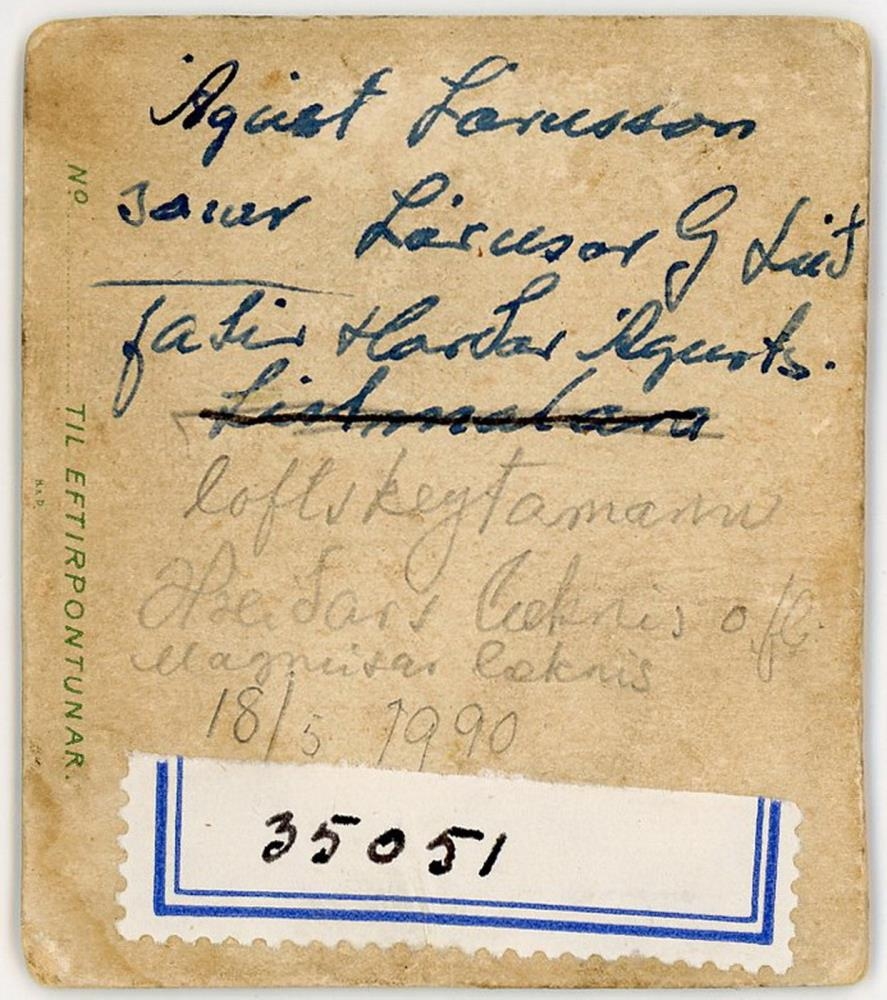 Ágúst Lárusson
sonur Lárusar G Lúð
faðir Harðar Ágústs.
Listmálara
loftskeytamann
Hreiðars læknis o.fl.
Magnúsar læknis
18/5 1990
35051
No
TIL EFTIRPONTUNAR.
H.&D.